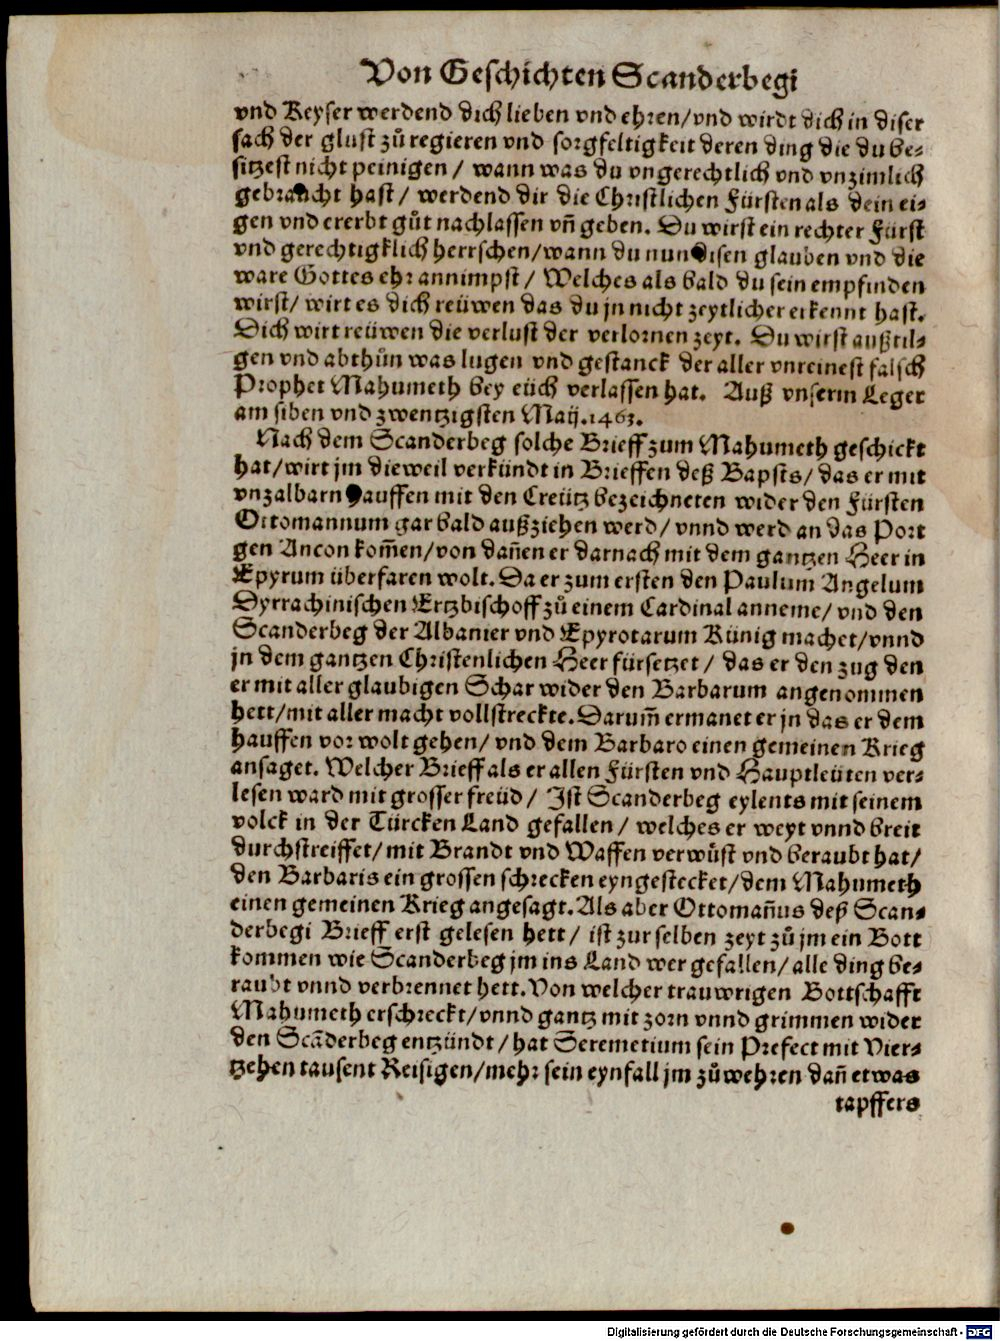 Von Geschichten Scanderbegi
vnd Keyser werdend dich lieben vnd ehren/vnd wirdt dich in diser
sach der glust zů regieren vnd sorgfeltigkeit deren ding die du be⸗
sitzest nicht peinigen / wann was du vngerechtlich vnd vnzimlich
gebraucht hast / werdend dir die Christlichen Fürsten als dein ei⸗
gen vnd ererbt gůt nachlassen vn̄ geben. Du wirst ein rechter Fürst
vnd gerechtigklich herrschen/wann du nun disen glauben vnd die
ware Gottes ehr annimpst / Welches als bald du sein empfinden
wirst/ wirt es dich reüwen das du jn nicht zeytlicher erkennt hast.
Dich wirt reüwen die verlust der verlornen zeyt. Du wirst außtil⸗
gen vnd abthůn was lugen vnd gestanck der aller vnreinest falsch
Prophet Mahumeth bey eüch verlassen hat. Auß vnserm Leger
am siben vnd zwentzigsten Maij.1463.
Nach dem Scanderbeg solche Brieff zum Mahumeth geschickt
hat/wirt jm dieweil verkündt in Brieffen deß Bapsts/ das er mit
vnzalbarn hauffen mit den Creütz bezeichneten wider den Fürsten
Ottomannum gar bald außziehen werd/ vnnd werd an das Port
gen Ancon kom̄en/von dan̄en er darnach mit dem gantzen Heer in
Epyrum überfaren wolt. Da er zum ersten den Paulum Angelum
Dyrrachinischen Ertzbischoff zů einem Cardinal anneme/ vnd den
Scanderbeg der Albanier vnd Epyrotarum Künig machet/vnnd
jn dem gantzen Christenlichen Heer fürsetzet / das er den zug den
er mit aller glaubigen Schar wider den Barbarum angenommen
hett/mit aller macht vollstreckte. Darum̄ ermanet er jn das er dem
hauffen vor wolt gehen/ vnd dem Barbaro einen gemeinen Krieg
ansaget. Welcher Brieff als er allen Fürsten vnd Hauptleüten ver⸗
lesen ward mit grosser freüd / Ist Scanderbeg eylents mit seinem
volck in der Türcken Land gefallen / welches er weyt vnnd breit
durchstreiffet/ mit Brandt vnd Waffen verwůst vnd beraubt hat/
den Barbaris ein grossen schrecken eyngestecket/dem Mahumeth
einen gemeinen Krieg angesagt. Als aber Ottoman̄us deß Scan⸗
derbegi Brieff erst gelesen hett / ist zur selben zeyt zů jm ein Bott
kommen wie Scanderbeg jm ins Land wer gefallen/ alle ding be⸗
raubt vnnd verbrennet hett. Von welcher trauwrigen Bottschafft
Mahumeth erschreckt/vnnd gantz mit zorn vnnd grimmen wider
den Scāderbeg entzündt / hat Seremetium sein Prefect mit Vier⸗
tzehen tausent Reisigen/mehr sein eynfall jm zů wehren dan̄ etwas
tapffers
Digitalisierung gefördert durch die Deutsche Forschungsgemeinschaft - DFG